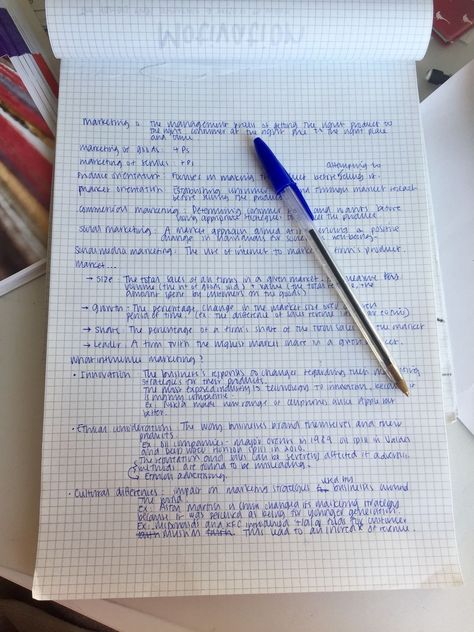 Motivation
Marketing : The management process of getting the right product to
the right consumer at the right price in the right place
and time
marketing of goods : 4Ps
marketing of services : 7Ps
attempting to
Product orientation : Focuses in making the product before selling it.
market orientation : Establishing consumer through market research
before selling the product
commercial marketing : Determining consumer and wants before
using appropriate strategies to the product
social marketing : A market approach aimed at a positive
change in
Social media marketing : The use of internet to market a firm's product.
Market...
→ Size : The total sales of all firms in a given market.
volume (the nº of goods sold) + value (the total
amount spent by customers on the goods)
→ Growth : The percentage change in the market size over
period of time. (ex: the difference of sales revenue
→ Share : The percentage of a firm's share of the total sales the market
→ Leader : A firm with the highest market share in a given market.
What influence marketing?
• Innovation : The business's response to change regarding their marketing
strategies for their products.
The most is technology to innovation, because
is more competitive.
Ex: made new range of cellphones since Apple
better.
• Ethical consideration : The way businesses brand themselves and their
products.
Ex: oil companies - major events in 1989 oil spill in Valdez
and deep water horizon spill in 2010.
The reputation and sales can be severely affected if advertising
methods are found to be misleading.
↳ Ethical advertising.
used by
• Cultural differences : impact on marketing strategies for businesses around
the world
Ex: Aston Martin in China changed its marketing strategy
because it was perceived as being for younger generation.
Ex: McDonalds and KFC introduced halal foods for customer
faith muslim faith. This lead to an increase of revenue.